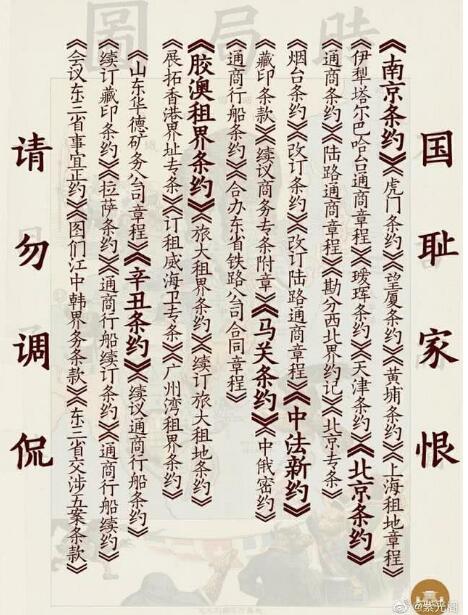 時局圖
国耻家恨
《南京条约》《虎门条约》《望厦条约》《黄埔条约》《上海租地章程》
《伊犁塔尔巴哈台通商章程》《瑷珲条约》《天津条约》《北京条约》
《通商条约》《陆路通商章程》《勘分西北界约记》《北京专条》
《烟台条约》《改订条约》《改订陆路通商章程》《中法新约》
《藏印条款》《续议商务专条附章》《马关条约》《中俄密约》
《通商行船条约》《合办东省铁路公司合同章程》
《胶澳租界条约》《旅大租界条约》《续订旅大租地条约》
《展拓香港界址专条》《订租威海卫专条》《广州湾租界条约》
《山东华德矿务公司章程》《辛丑条约》《续议通商行船条约》
《续订藏印条约》《拉萨条约》《通商行船续订条约》《通商行船续约》
《会议东三省事宜正约》《图们江中韩界务条款》《东三省交涉五案条款》
请勿调侃
@紫光阁